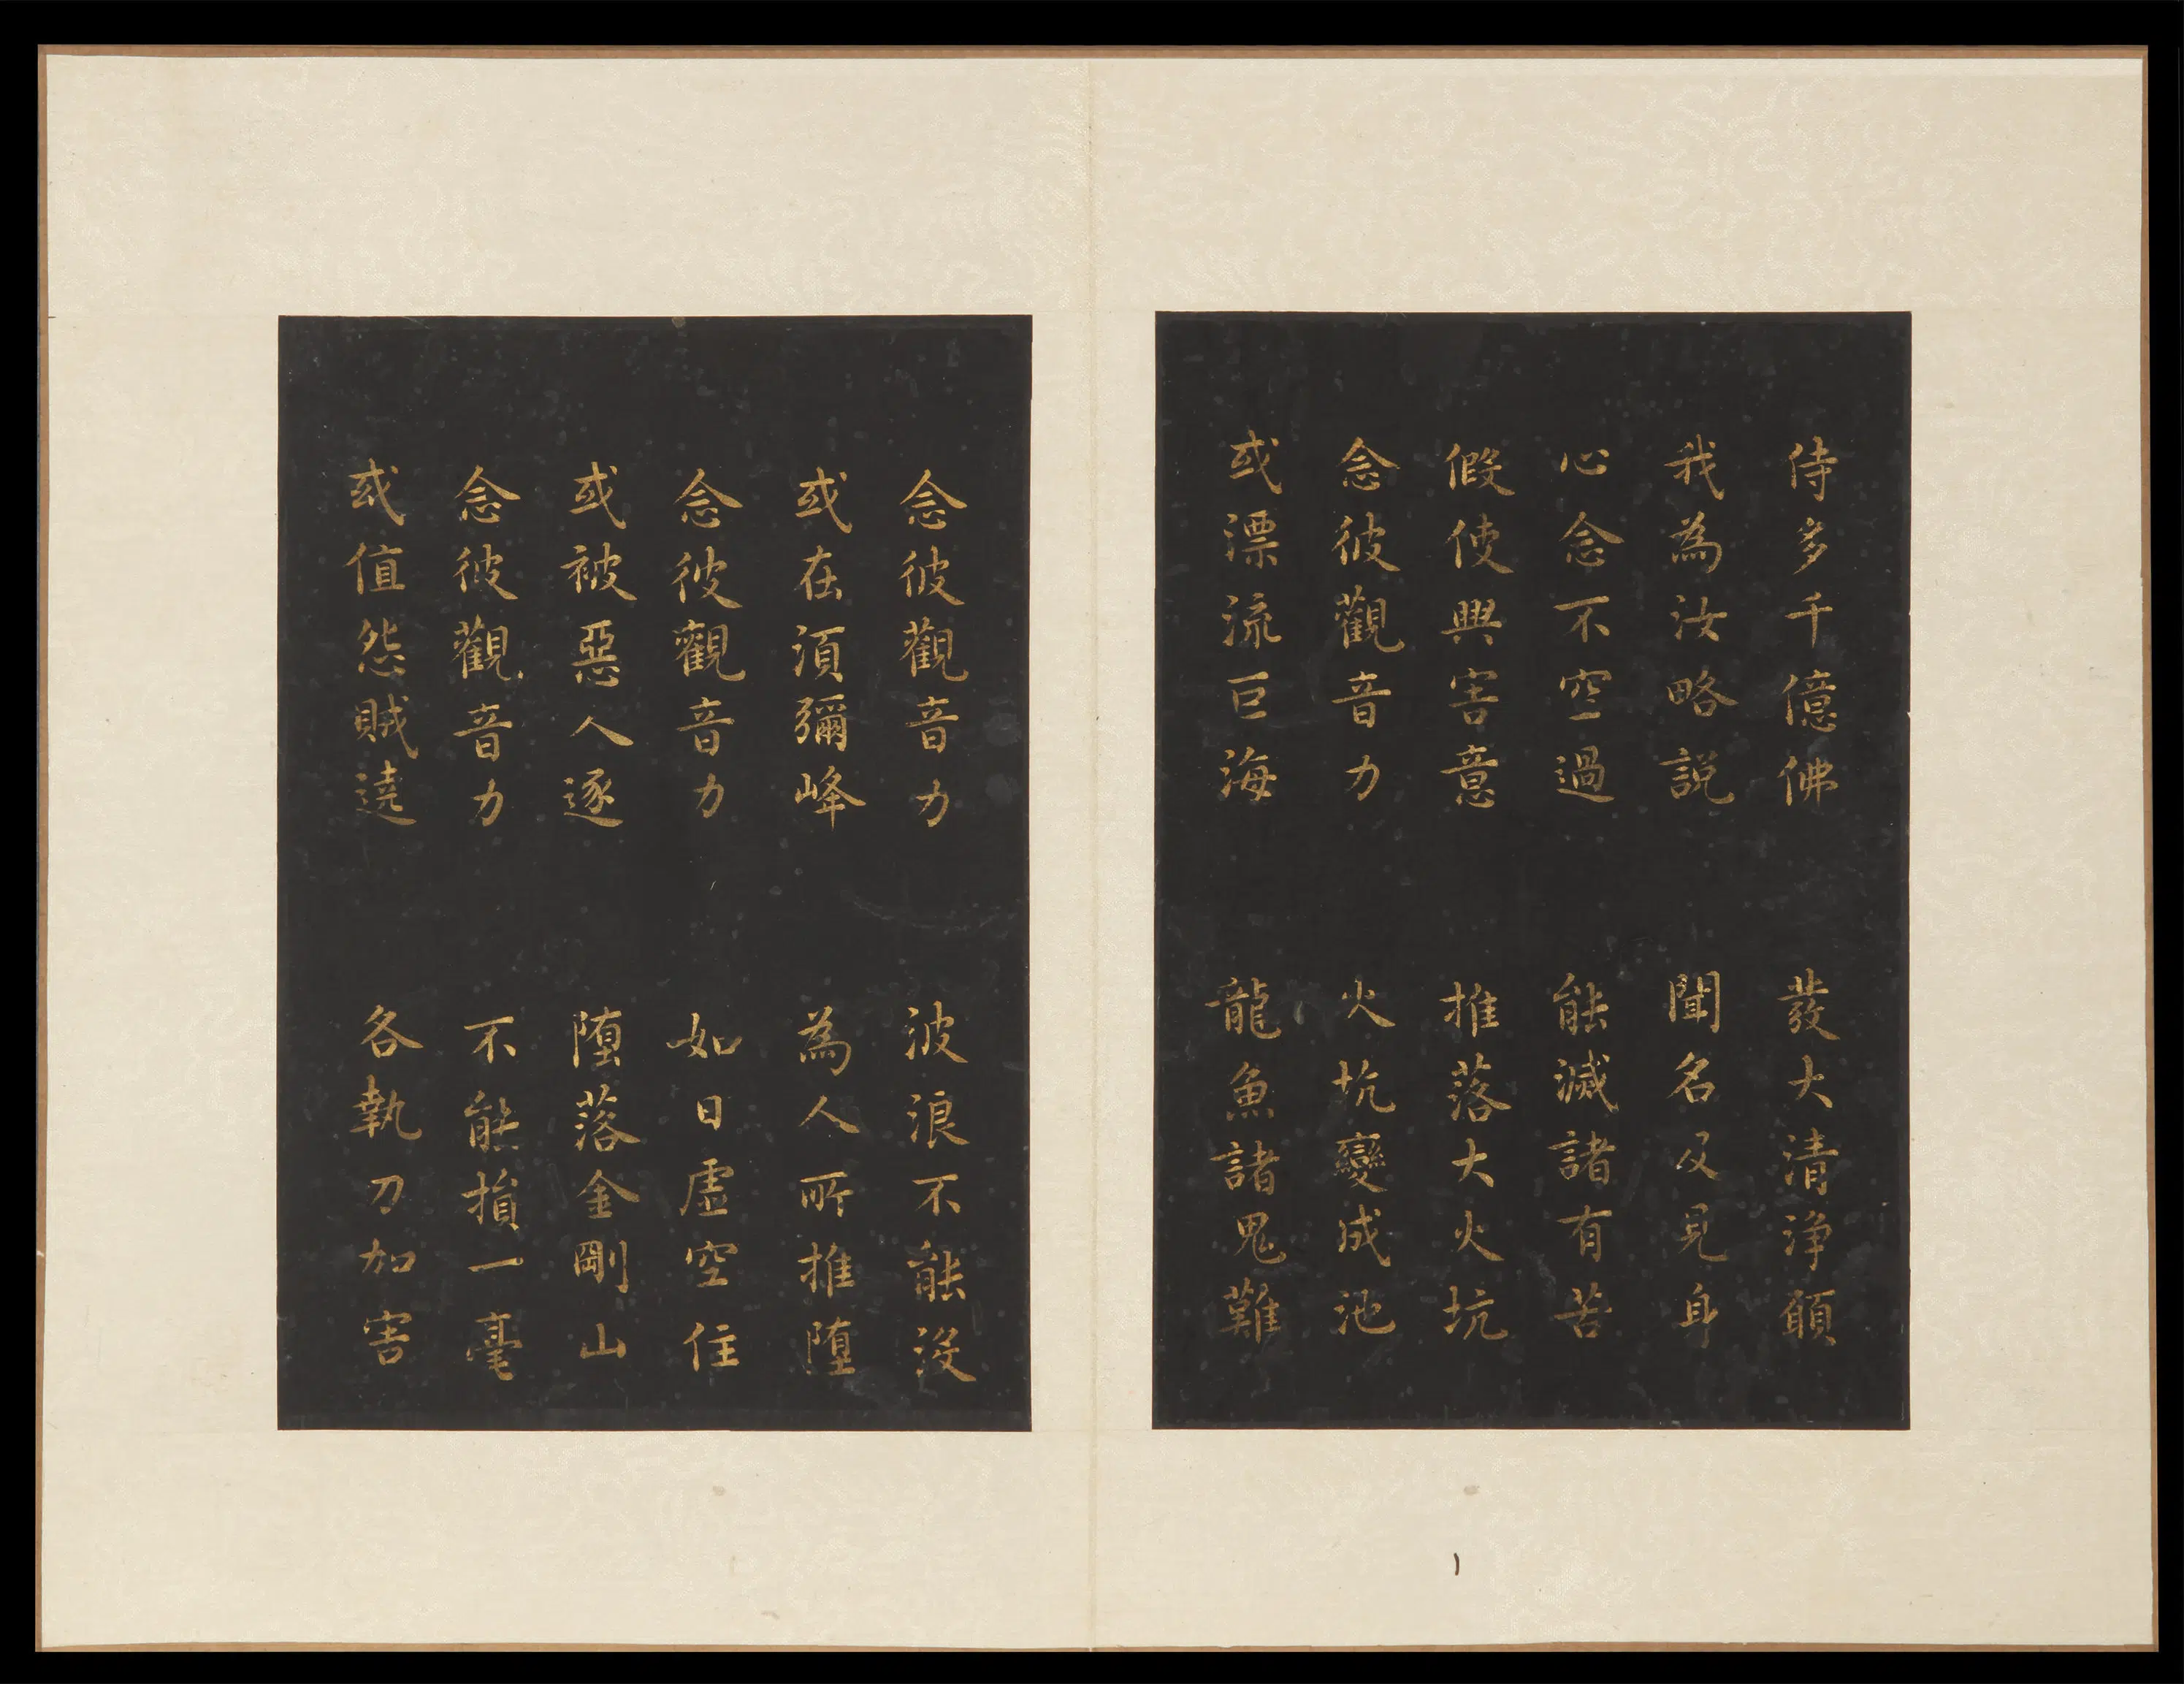 侍多千億佛 發大清淨願
我為汝略說 聞名及見身
心念不空過 能滅諸有苦
假使興害意 推落大火坑
念彼觀音力 火坑變成池
或漂流巨海 龍魚諸鬼難
念彼觀音力 波浪不能沒
或在須彌峰 為人所推墮
念彼觀音力 如日虛空住
或被惡人逐 墮落金剛山
念彼觀音力 不能損一毫
或值怨賊遶 各執刀加害